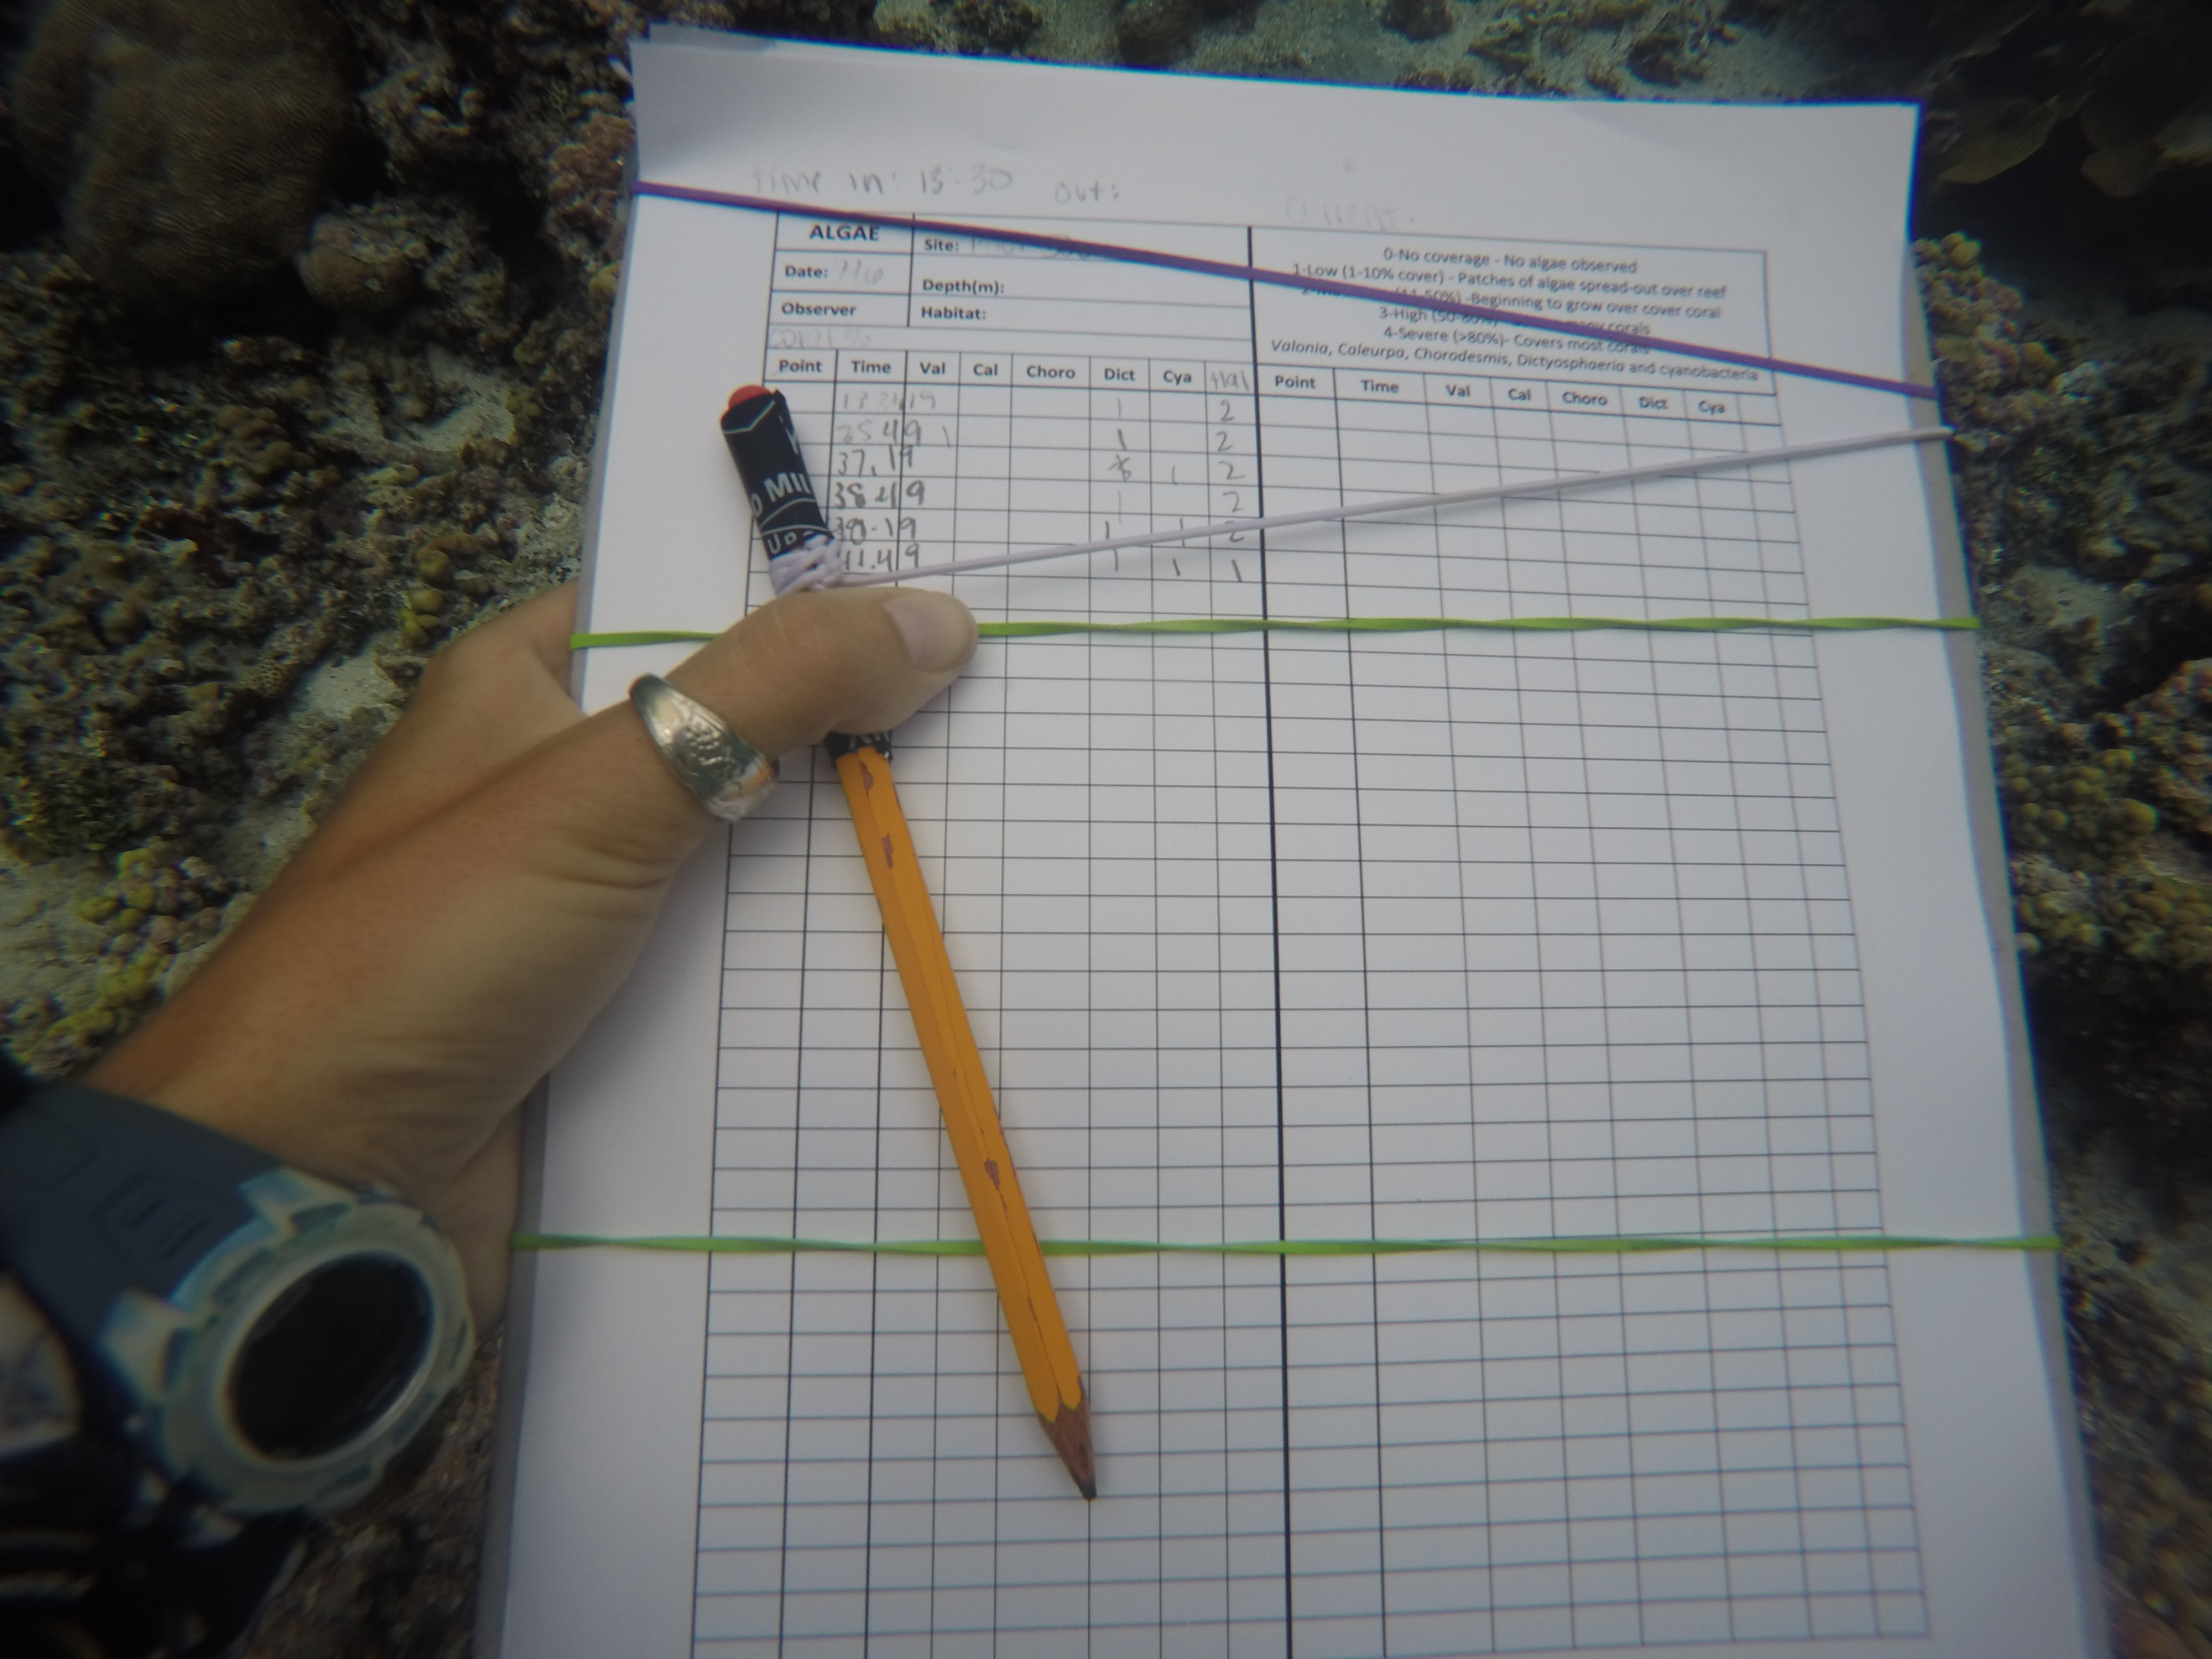 Time in: 13:30 out:
Current.
ALGAE Site:
Date: 116 Depth(m):
Observer Habitat:
0-No coverage - No algae observed
1-Low (1-10% cover) - Patches of algae spread-out over reef
(11-50%) -Beginning to grow over cover coral
3-High (50-80%) many corals
4-Severe (>80%)- Covers most corals
Valonia, Caleurpa, Chorodesmis, Dictyosphaeria and cyanobacteria
Point Time Val Cal Choro Dict Cya Hal Point Time Val Cal Choro Dict Cya
1 2
35 49 1 1 2
37.19 1 2
38 49 1 2
39.19 1 1 2
41.49 1 1 1
MIL
UP